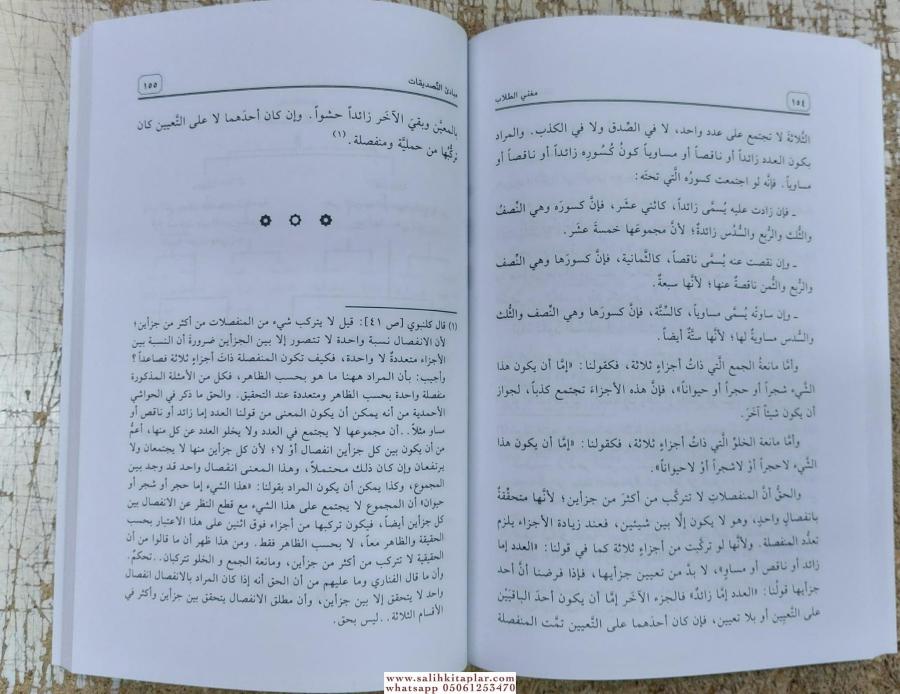 ١٥٤
مغني الطلاب
الثَّلاثةَ لا تجتمع على عدد واحد، لا في الصِّدق ولا في الكذب. والمراد
بكون العدد زائداً أو ناقصاً أو مساوياً كونُ كُسُورِه زائداً أو ناقصاً أو
مساوياً. فإنَّه لو اجتمعت كسورُه الَّتي تحتَه:
ـ فإن زادت عليه يُسمَّى زائداً، كاثني عشَر، فإنَّ كسورَه وهي النِّصفُ
والثُّلث والرُّبع والسُّدُس زائدةٌ؛ لأنَّ مجموعَها خمسةَ عشَر.
ـ وإن نقصت عنه يُسمَّى ناقصاً، كالثَّمانية، فإنَّ كسورَها وهي النِّصف
والرُّبع والثُّمن ناقصةٌ عنها؛ لأنَّها سبعةٌ.
ـ وإن ساوتْه يُسمَّى مساوياً، كالسِّتَّة، فإنَّ كسورَها وهي النِّصف والثُّلث
والسُّدس مساويةٌ لها؛ لأنَّها ستَّةٌ أيضاً.
وأمَّا مانعةُ الجمع الَّتي ذاتُ أجزاءٍ ثلاثة، فكقولنا: «إمَّا أن يكون هذا
الشَّيء شجراً أو حجراً أو حيواناً»، فإنَّ هذه الأجزاءَ تجتمع كذباً، لجواز
أن يكون شيئاً آخَرَ.
وأمَّا مانعة الخلوِّ الَّتي ذاتُ أجزاء ثلاثة، فكقولنا: «إمَّا أن يكون هذا
الشَّيء لاحجراً أوْ لاشجراً أوْ لاحيواناً».
والحقُّ أنَّ المنفصلاتِ لا تتركَّب من أكثرَ من جزأين؛ لأنَّها متحقِّقةٌ
بانفصالٍ واحدٍ، وهو لا يكون إلَّا بين شيئين، فعند زيادة الأجزاء يلزم
تعدُّد المنفصلة. ولأنَّها لو تركَّبت من أجزاءٍ ثلاثة كما في قولنا: «العدد إما
زائد أو ناقص أو مساوٍ»، لا بدَّ من تعيين جزأيها، فإذا فرضنا أنَّ أحد
جزأيها قولُنا: «العدد إمَّا زائدٌ» فالجزء الآخَر إمَّا أن يكون أحدَ الباقيَيْن
على التَّعيِين أو بلا تعيين، فإن كان أحدَهما على التَّعيين تمَّت المنفصلة
مبادئ التَّصديقات
١٥٥
بالمعيَّن وبقيَ الآخَر زائداً حشواً. وإن كان أحدَهما لا على التَّعيين كان
تركُّبها من حمليَّة ومنفصلة.(١)
(١) قال كلنبوي [ص ٤١]: قيل لا يتركب شيء من المنفصلات من أكثر من جزأين؛
لأن الانفصال نسبة واحدة لا تتصور إلا بين الجزأين ضرورةَ أن النسبة بين
الأجزاء متعددةٌ لا واحدة، فكيف تكون المنفصلة ذاتَ أجزاءٍ ثلاثة فصاعداً؟
وأجيب: بأن المراد ههنا ما هو بحسب الظاهر، فكل من الأمثلة المذكورة
منفصلة واحدة بحسب الظاهر ومتعددة عند التحقيق. والحق ما ذكر في الحواشي
الأحمدية من أنه يمكن أن يكون المعنى من قولنا العدد إما زائد أو ناقص أو
مساو مثلاً.. أن مجموعها لا يجتمع في العدد ولا يخلو العدد عن كل منها، أعمُّ
من أن يكون بين كل جزأين انفصال أوْ لا؛ لأن كل جزأين منها لا يجتمعان ولا
يرتفعان وإن كان ذلك محتملاً، وهذا المعنى انفصال واحد قد وجد بين
المجموع، وكذا يمكن أن يكون المراد بقولنا: «هذا الشيء إما حجر أو شجر أو
حيوان» أن المجموع لا يجتمع على هذا الشيء مع قطع النظر عن الانفصال بين
كل جزأين أيضاً، فيكون تركيبها من أجزاء فوق اثنتين على هذا الاعتبار بحسب
الحقيقة والظاهر معاً، لا بحسب الظاهر فقط. ومن هذا ظهر أن ما قالوا من أن
الحقيقية لا تتركب من أكثر من جزأين، ومانعة الجمع و الخلو تتركبان.. تحكّم.
وأن ما قال الفناري وما عليهم من أن الحق أنه إذا كان المراد بالانفصال انفصال
واحد لا يتحقق إلا بين جزأين، وأن مطلق الانفصال يتحقق بين جزأين وأكثر في
الأقسام الثلاثة.. ليس بحق.
www.salihkitaplar.com
whatsapp 05061253470